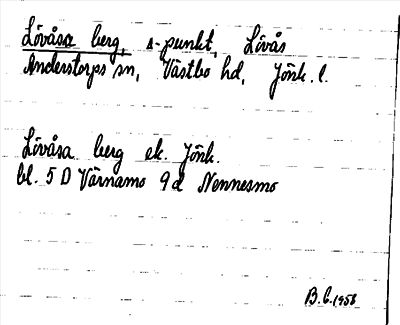 Lövåsa berg, s-punkt, Lövås
Anderstorps sn, Västbo hd, Jönk. l.
Lövåsa berg ek. Jönk.
bl. 5 D Värnamo 9 d Nennesmo
B.C. 1958